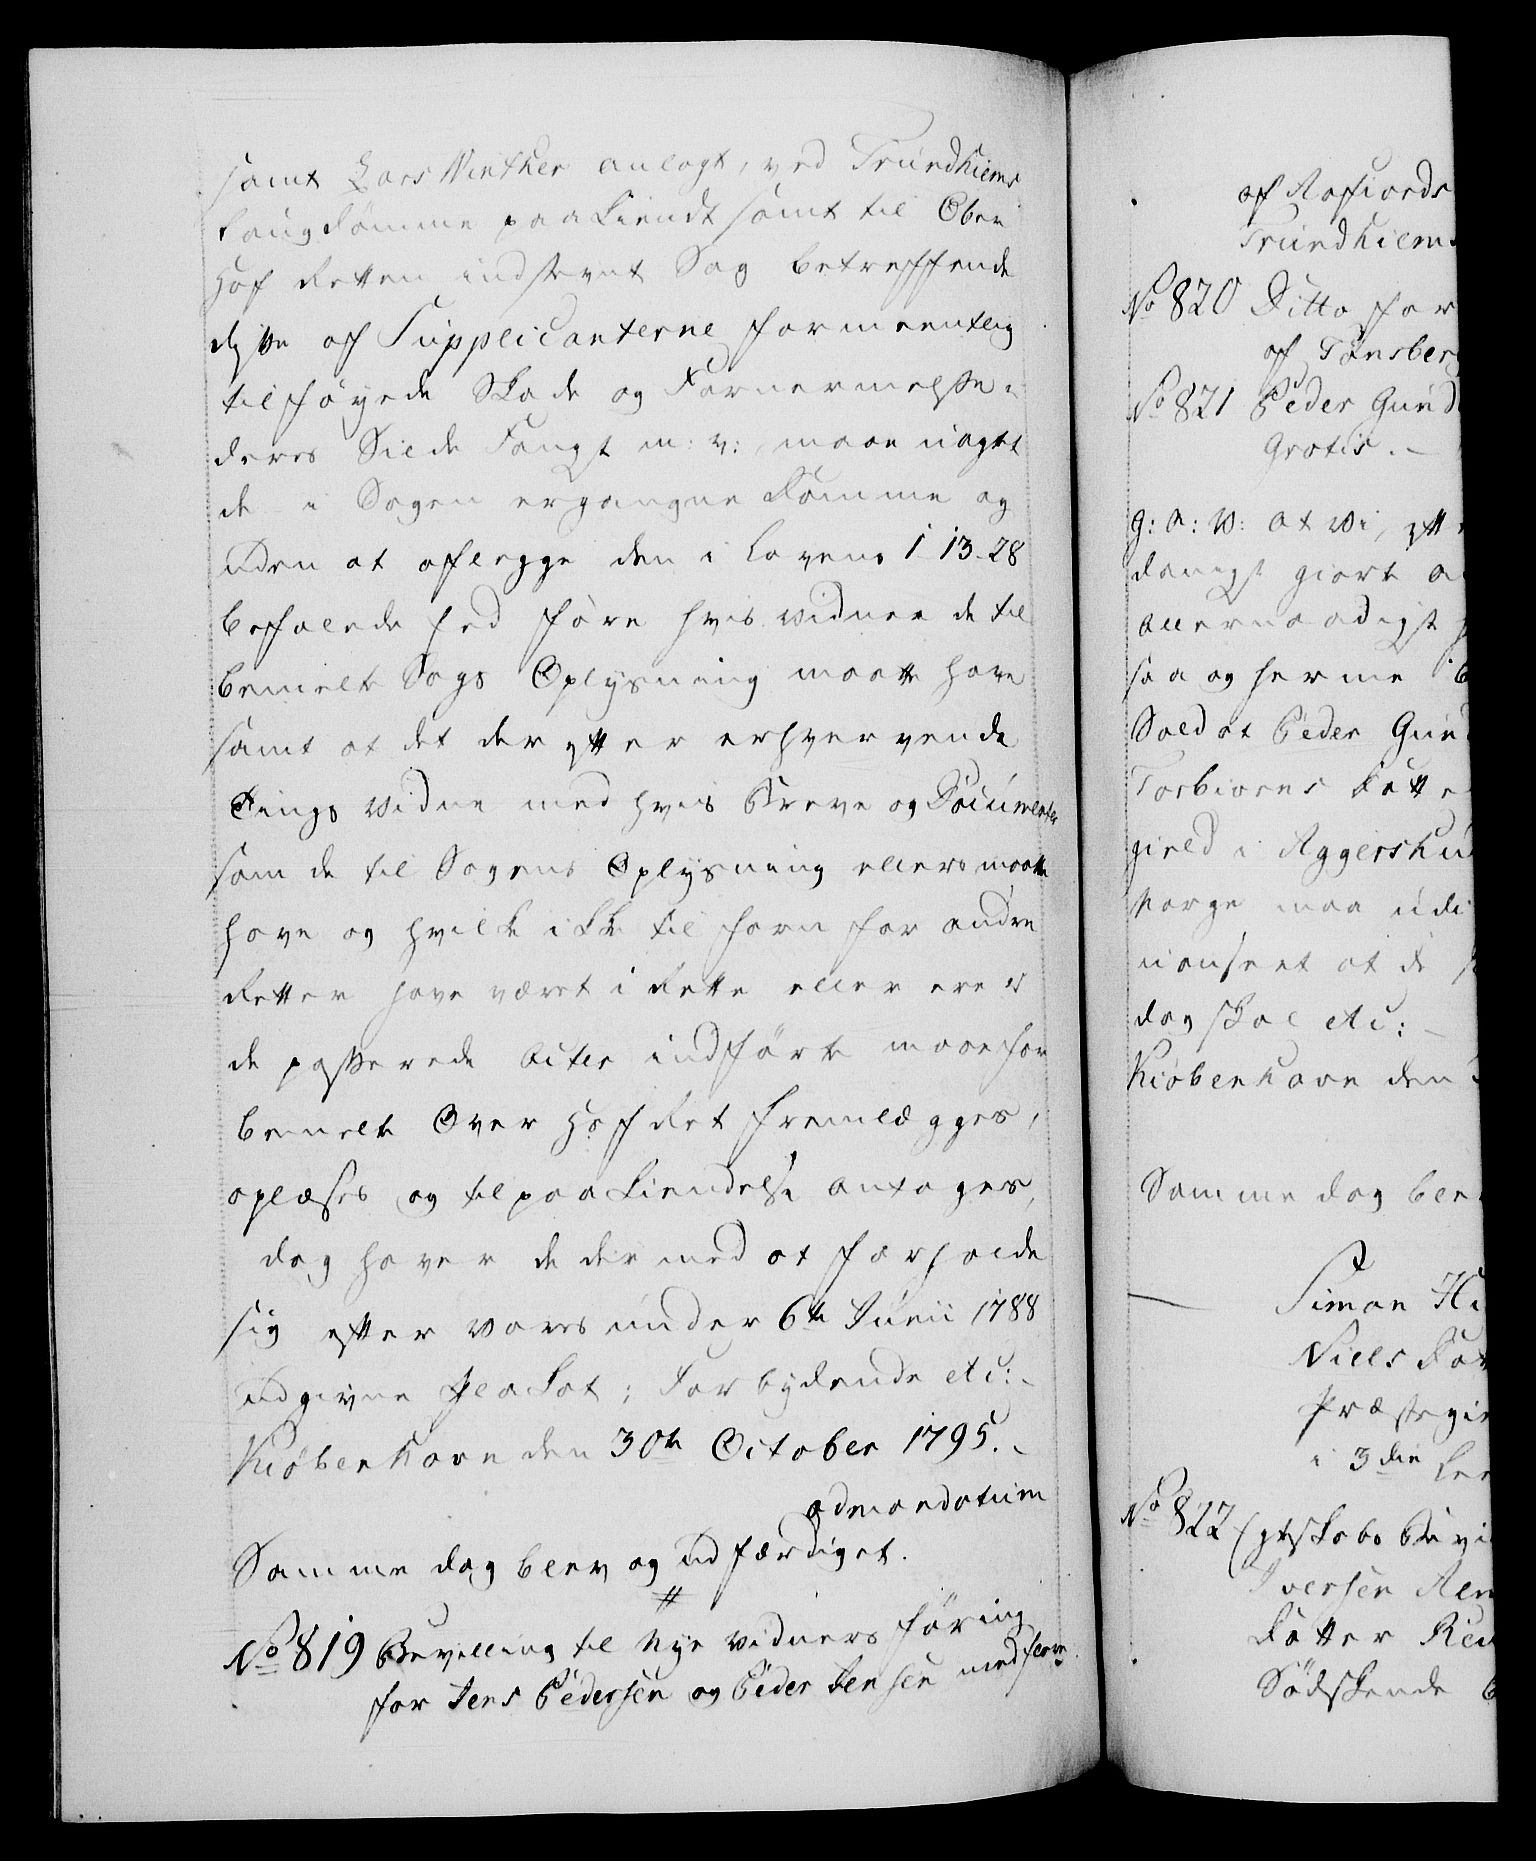 samt Lars Winther anlagt, ved Trundhiems
Laugdømme paakiendt samt til Ober
Hof Retten indstevnt Sag betreffende
disse af Supplicanterne formeentlig
tilføyede Skade og Fornermelse i
deres Silde Fangst m: v:, maae uagtet
de i Sagen ergangne Domme og
uden at aflegge den i Lovens 1-13-28
befalede Eed føre hvis vidner de til
bemelte Sags Oplysning maatte have
samt at det der efter erhvervende
Tings vidne med hvis Breve og Documenter
som de til Sagens Oplysning ellers maatte
have og hvilke ikke til forn for andre
Retter have været i Rette eller ere i
de passerede Acter indførte maae for
bemelte Over Hof Ret fremlægges,
oplæses og til paakiendelse antages,
dog haver de dermed at forholde
sig efter vores under 6te Junii 1788
udgivne Placat; Forbydende etc:
Kiøbenhavn den 30te October 1795.
ad mandatum
Samme dag blev og udfærdiget.
No 819 Bevilling til Nye vidners føring
for Jens Pedersen og Peder Jensen med flere
af Rafsiords
Trundhiems
No 820 Ditto for
af Tønsberg
No 821 Peder Gund
Gratis.
G: A: V: at vi, efter
danigst giort a
allernaadigst
saa og herme b
Soldat Peder Gun
Torbiørns Datter
gield i Aggershuu
Norge maa udi
uanseet at de
dog skal etc:
Kiøbenhavn den
Samme dag blev
Simon Hi
Niels Dat
Præstegie
i 3die Lee
No 822 Egteskabs Bevi
Iversen Ren
Datter
Sødskende B